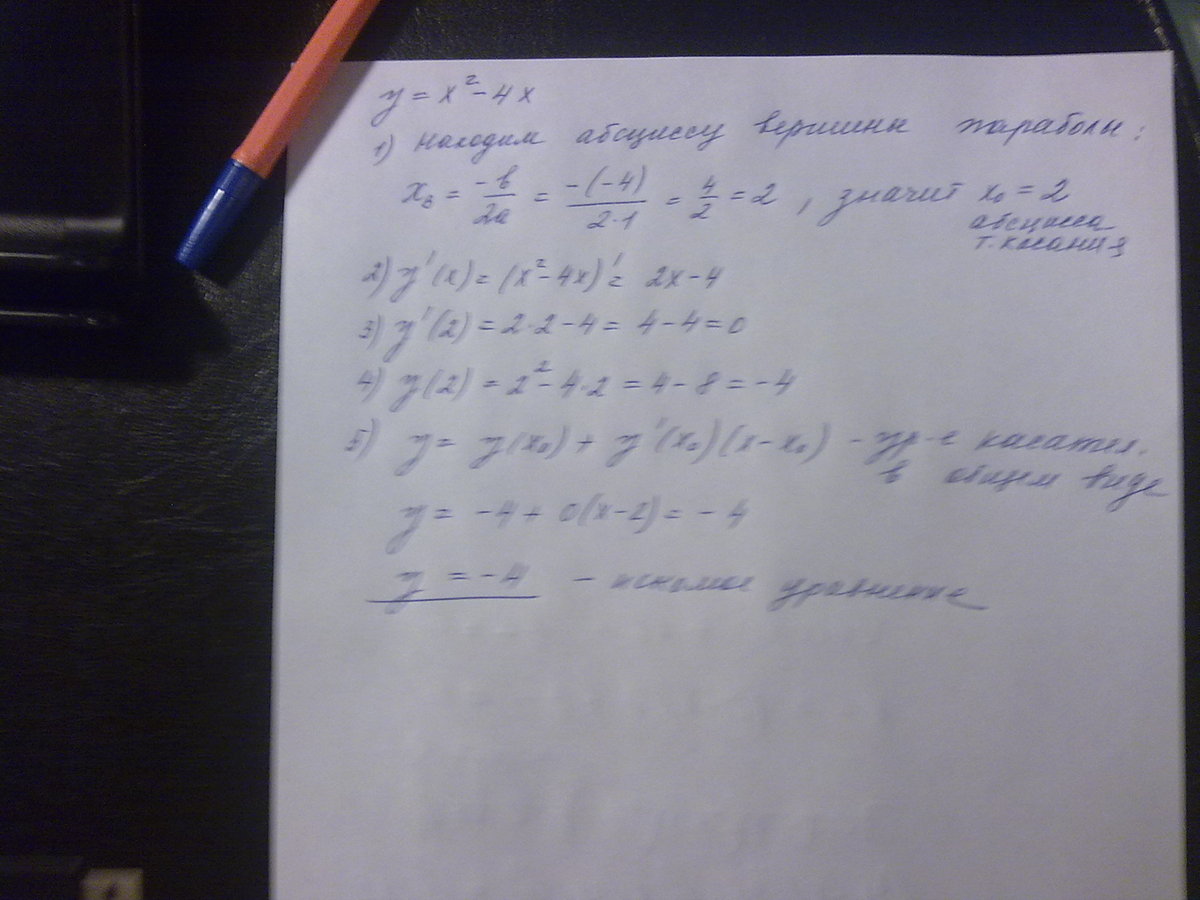 y = x² - 4x
1) Находим абсциссу вершины параболы:
xв = -b/2a = -(-4)/2·1 = 4/2 = 2, значит x₀ = 2
абсцисса
т. касания
2) y'(x) = (x² - 4x)' = 2x - 4
3) y'(2) = 2·2 - 4 = 4 - 4 = 0
4) y(2) = 2² - 4·2 = 4 - 8 = -4
5) y = y(x₀) + y'(x₀)(x - x₀) - ур-е касател.
в общем виде
y = -4 + 0(x - 2) = -4
y = -4 - искомое уравнение